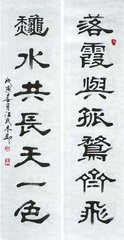 落霞與孤鶩齊飛
龝水共長天一色